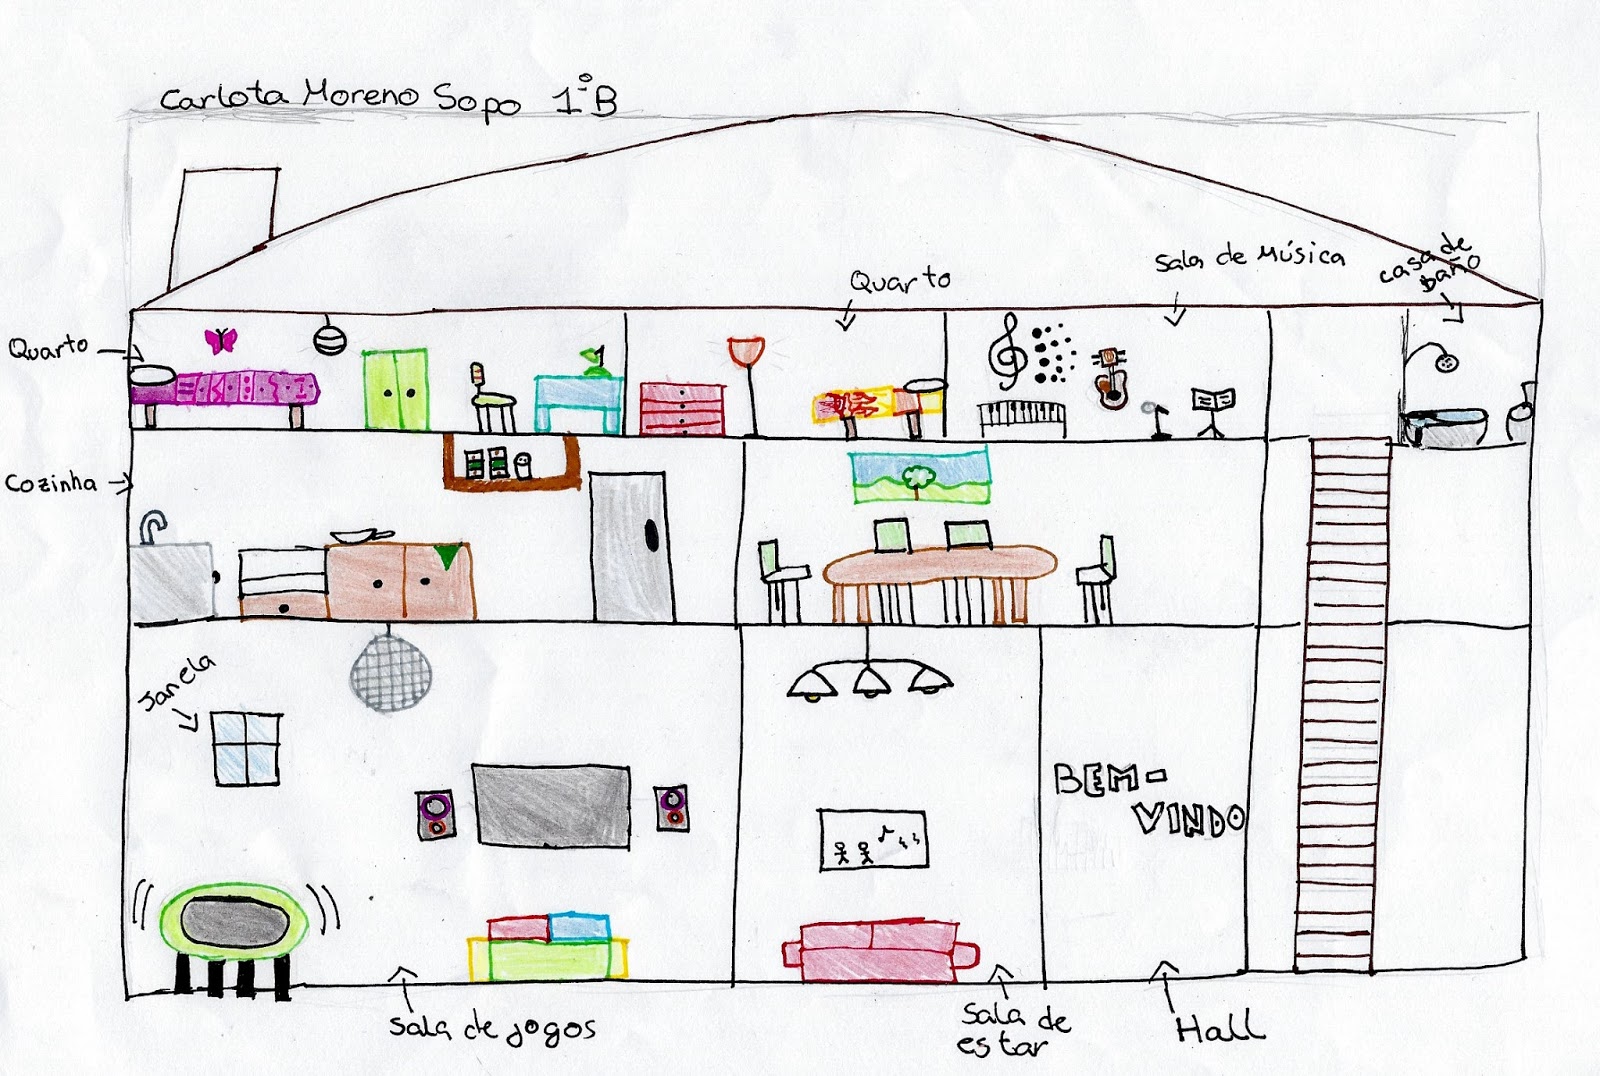 Carlota Moreno Sopo 1ºB
Quarto
Quarto
Sala de Música
casa de
baño
Cozinha
Janela
BEM-
VINDO
Sala de jogos
Sala de
estar
Hall